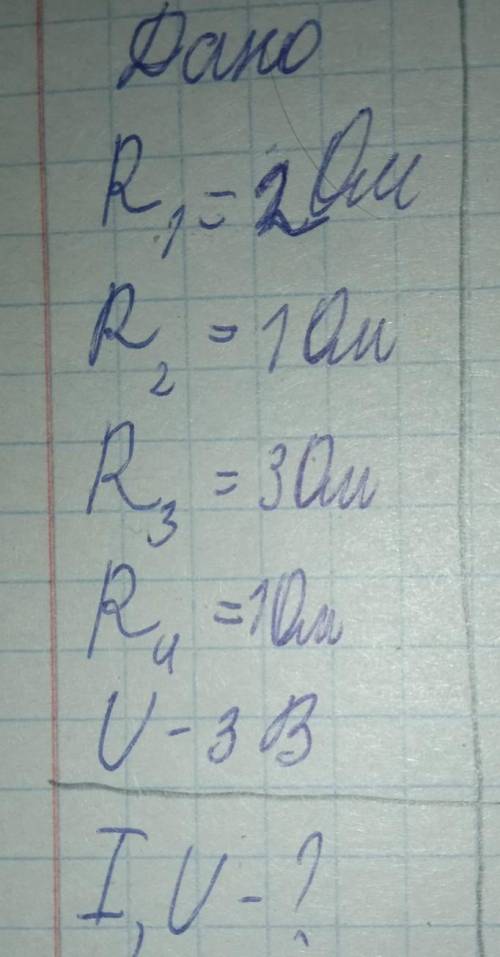 Дано
R₁ = 2 Ом
R₂ = 1 Ом
R₃ = 3 Ом
R₄ = 1 Ом
U - 3 В
I, U - ?